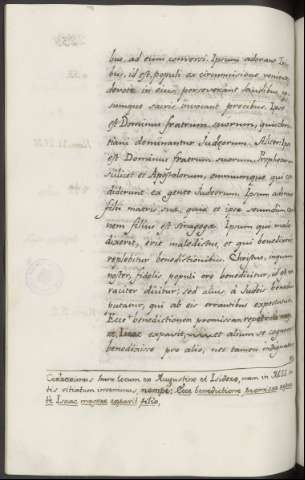 bus, ad eum conversi. Ipsum adorant Tri-
bus, id est, populi ex circumcisione venientes
devote in ejus perseverant laudibus,
sumque sacris invocant precibus. Ipse
est Dominus fratrum suorum, quia chris-
tiani dominantur Judæorum. Aliter: Ipse
est Dominus fratrum suorum Prophetarum
scilicet et Apostolorum, omniumque qui cre-
diderunt ex gente Judæorum. Ipsum adorant
filii matris suæ, quia et ipse secundum car-
nem filius est synagogæ. Ipsum qui male-
dixerit, erit maledictus, et qui benedixerit
replebitur benedictionibus. Christus, inquam,
noster, fidelis populi ore benedicitur, id est, ve-
raciter dicitur; sed alius a Judæis bene
putatur, qui ab eis errantibus expectatur.
Ecce benedictionem promissam repetente
Isaac expavit, et alium se cognovit
benedixisse pro alio; nec tamen indignatur
Correximus hunc locum ex Augustino et Isidoro, nam in MSS.
tis vitiatum invenimus, nempe: Ecce benedictione promissa
te Isaac expavit filio.